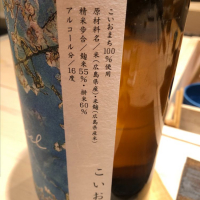 こいおまち100%使用
原材料名/米(広島県産)・米麹(広島県産米)
精米歩合/麹米55%・掛米60%
アルコール分/16度
こいお